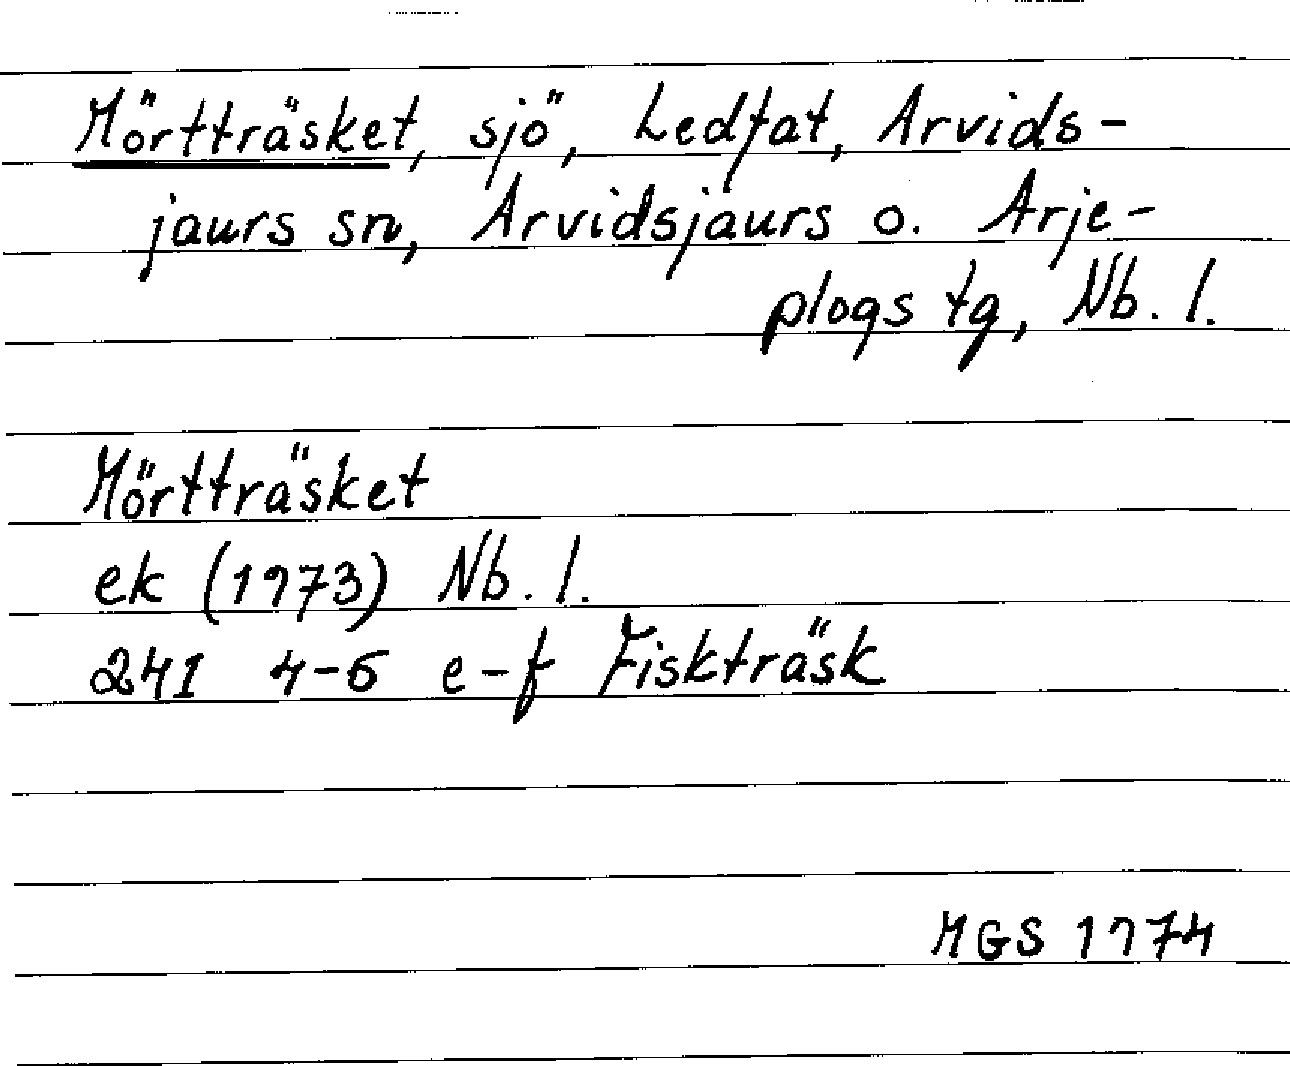 Mörtträsket, sjö, Ledfat, Arvids-
jaurs sn, Arvidsjaurs o. Arje-
plogs tg, Nb. l.
Mörtträsket
ek (1973) Nb. l.
241 4-5 e-f Fiskträsk
MGS 1974